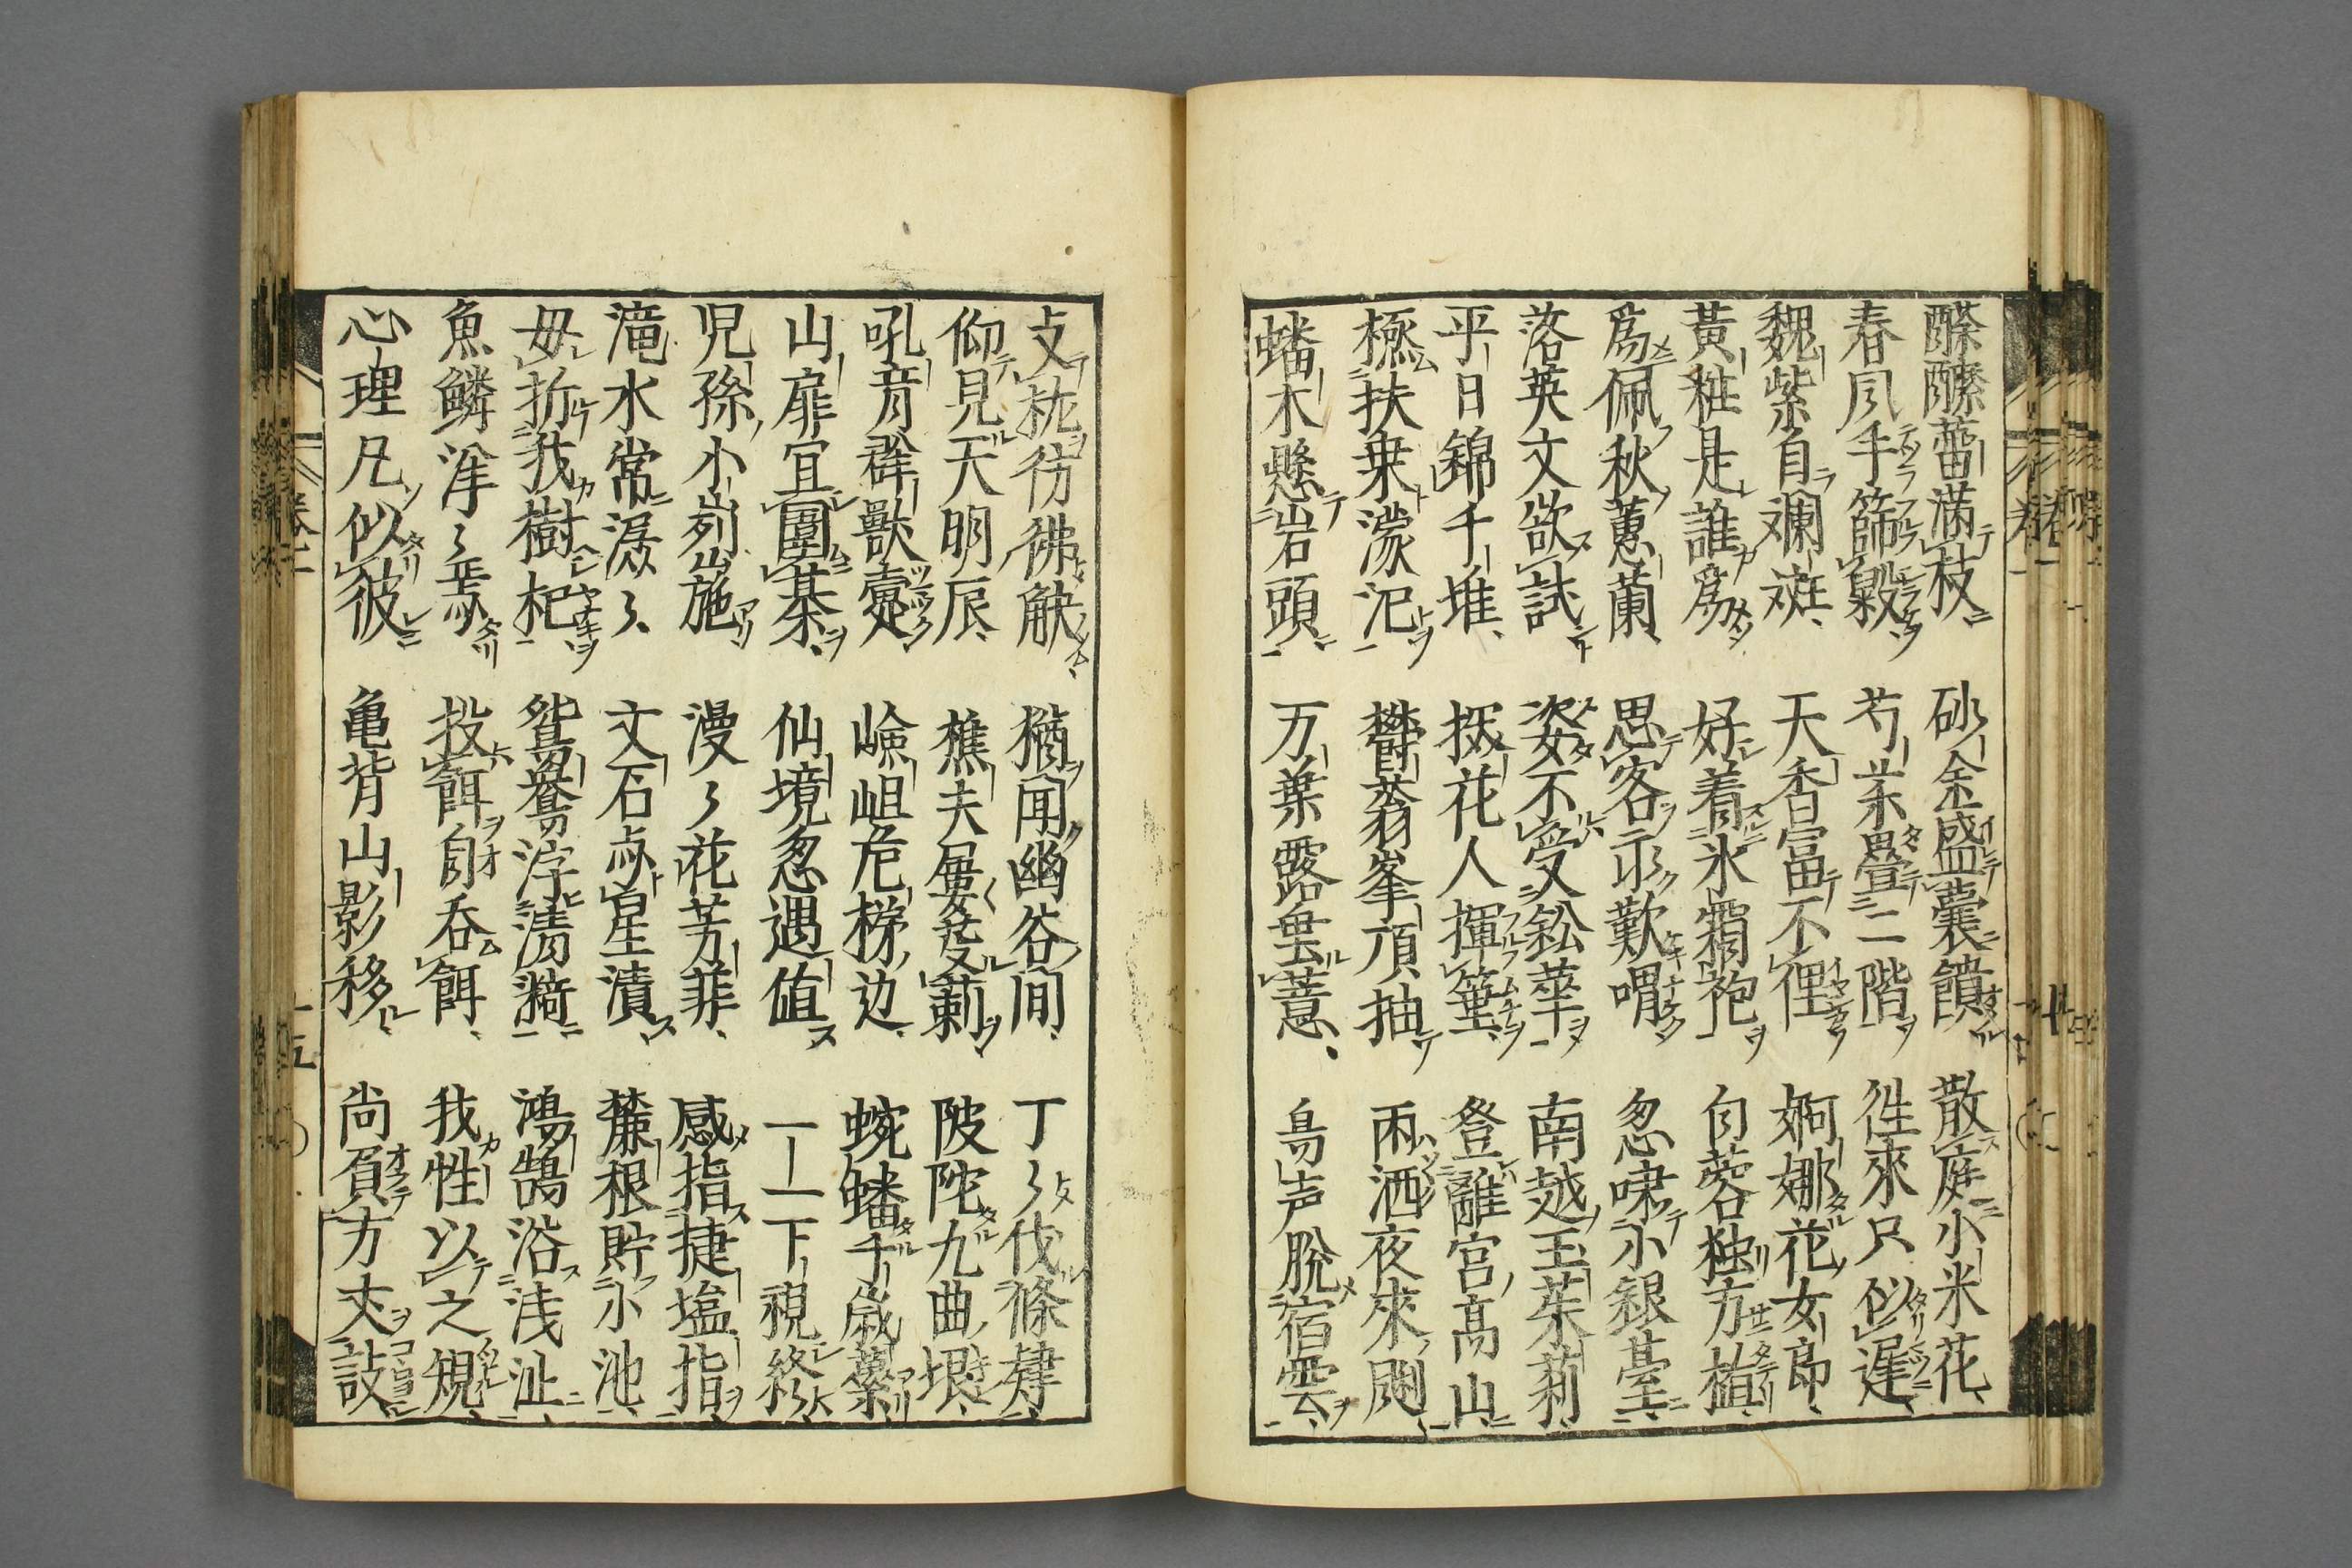 醿醾蕾満枝 砂金盛囊饋 散庭小米花
春风手篩穀 芍茶疊二階 徃來只似遲
魏紫自斕斑 天香富不俚 婀娜花女郎
黃粧是誰為 好着氷霜袍 匂蓉独方植
為佩秋蕙蘭 思客示歎喟 忽嘯小銀臺
落英文欲試 姿不受鉛華 南越玉茱莉
平日錦千堆 探花人揮箠 登離宮高山
極扶桒濛汜 欝蓊峯頂抽 雨洒夜來颸
蟠木懸岩頭 万葉露垂薏 鳥声脫宿雲
攴枕彷彿觖 猶聞幽谷間 丁〻伐條肄
仰見天明辰 樵夫屢芟藰 陂陀九曲垠
吼音群獸毚 嶮岨危梯边 蜿蟠千歲虆
山扉宜圍棊 仙境忽遇値 一上一下視終
児孫小峛崺 漫〻花芳菲 感指捷塩指
滝水常潺〻 文石点星漬 蘼根貯小池
毋折我樹杞 鴛鴦浮清漪 鴻鵠浴浅沚
魚鱗洋〻焉 投餌自呑餌 我性以之規
心理凡似彼 亀背山影移 尚負方丈敧
卷一 十五